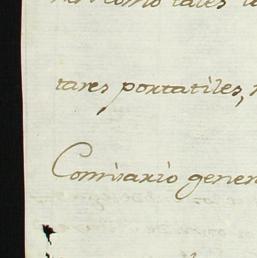 como tales
tares portatiles,
Comisario gener